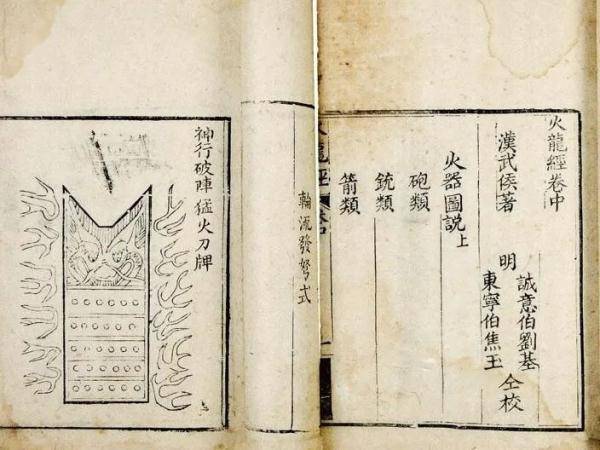 火龍經卷中
漢武侯著
明 誠意伯劉基
東寧伯焦玉 仝校
火器圖說上
砲類
銃類
箭類
龍經
輪流發弩式
神行破陣猛火刀牌